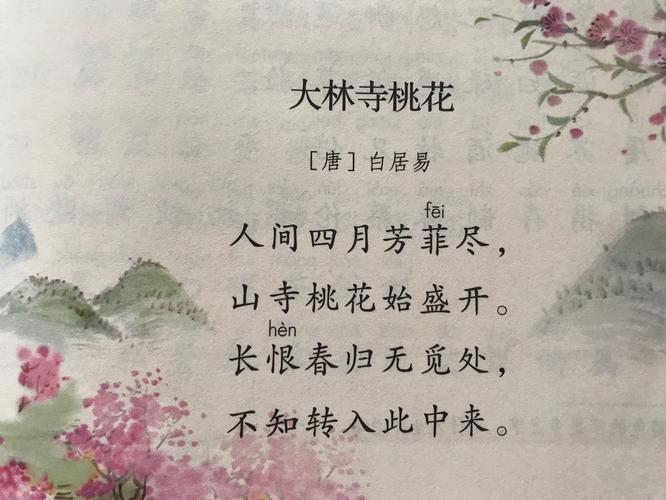 大林寺桃花
［唐］白居易
fēi
人间四月芳菲尽，
山寺桃花始盛开。
hèn
长恨春归无觅处，
不知转入此中来。